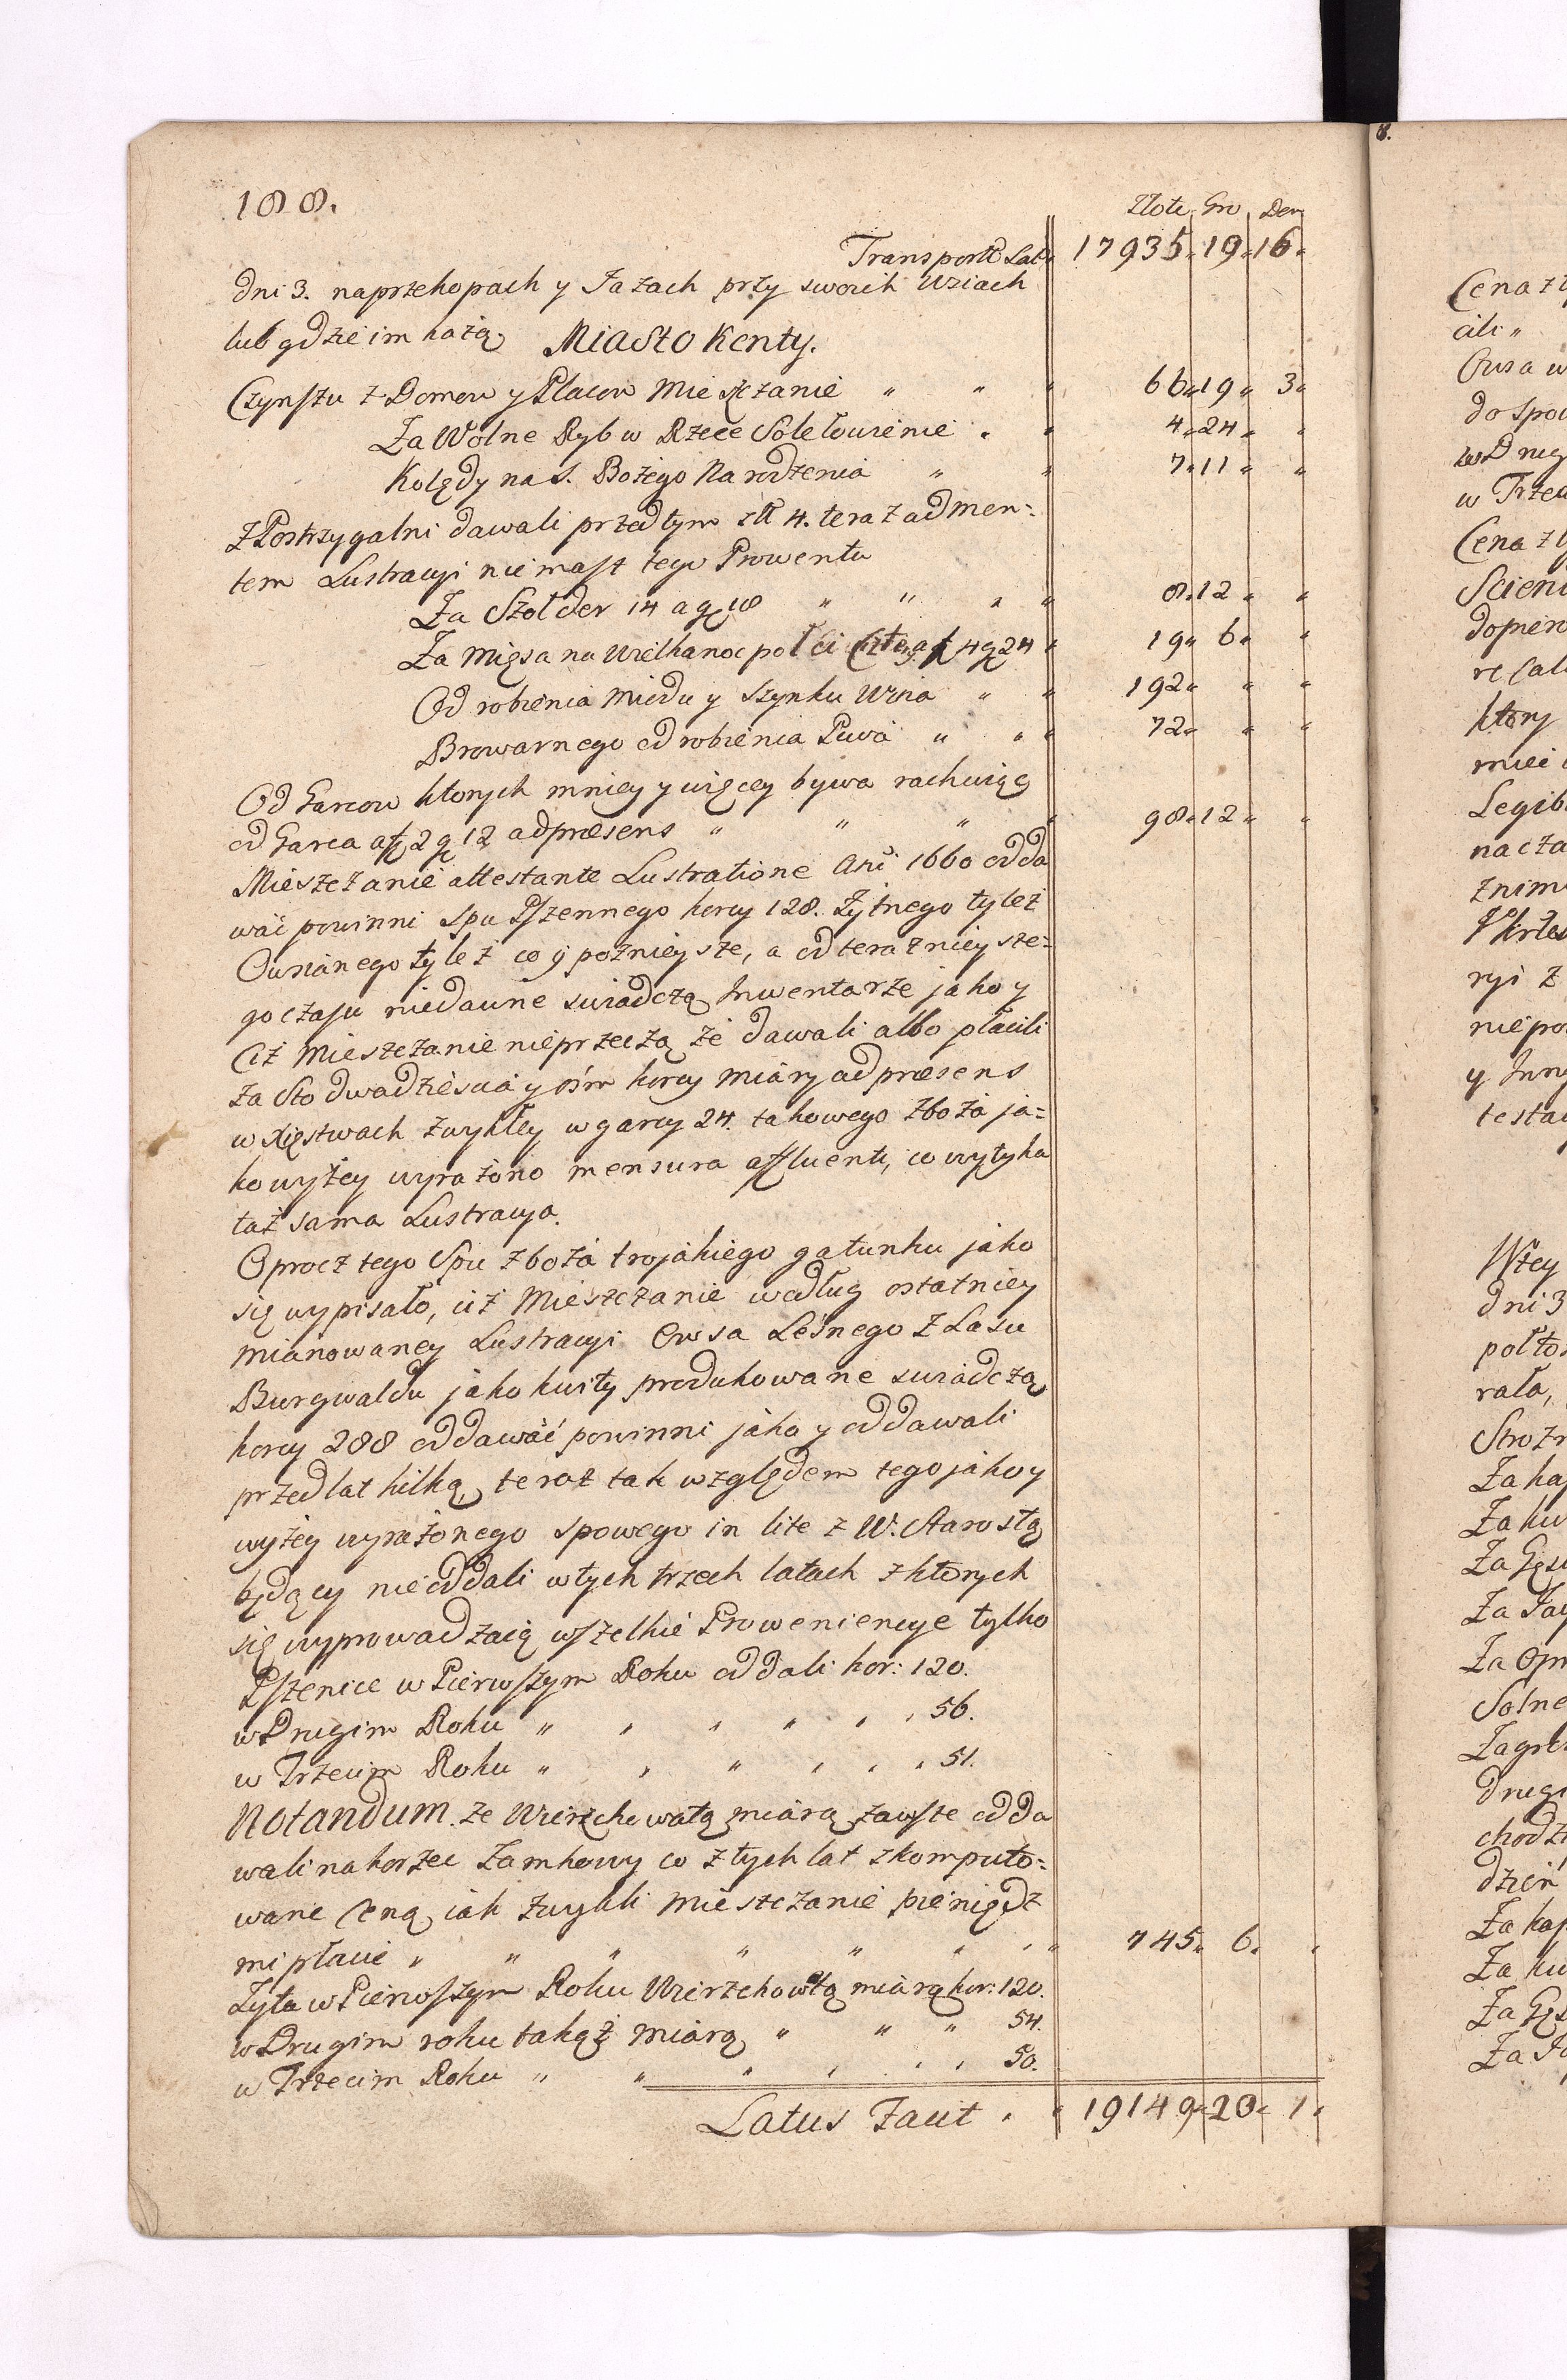 188.
Złote Gro Den
Transport Lat. 17935 19 16
dni 3. naprzekopach y Jazach przy swoich Wsiach
lub gdzie im każą. Miasto Kenty.
Czynszu z Domow y Placow Mieszczanie " " " 66 19 3
Za Wolne Ryb w Rzece Sole łowienie " " 4 24 "
Kolędy na S. Bożego Narodzenia " " 7 11 "
Z Postrzygalni dawali przedtym złł 4. teraz admen=
tem Lustracyi niemasz tego Prowentu
Za Szołder 14 a gr 18 " " " " 8 12 "
Za mięsa na Wielkanoc połci 4 gr 24 " 19 6 "
Od robienia Miodu y Szynku Wina " " 192 " "
Browarnego od robienia Piwa " " " 72 " "
Od Garcow ktorych mniey y więcey bywa rachuiąc
od Garca a fl 2 gr 12 ad præsens " " " " 98 12 "
Mieszczanie attestante Lustratione Ani 1660 odda
wać powinni Spu Pszennego korcy 128. Żytnego tyleż
Owsianego tyleż co y poznieysze, a od teraznieysze=
go czasu niedawne swiadczą Inwentarze jako y
Ciż Mieszczanie nieprzeczą że dawali albo płacili
za Sto dwadzieścia y ośm korcy miary ad præsens
w Xięstwach zwykłey w garcy 24. takowego zboża ja=
ko wyżey wyrażono mensura affluenti, co wytyka
taż sama Lustracya.
Oprocz tego Spu zboża trojakiego gatunku jako
się wypisało, ciż Mieszczanie według ostatniey
mianowaney Lustracyi Owsa Leśnego z Lasu
Burgwaldu jako kwity produkowane swiadczą
korcy 288 oddawać powinni jako y oddawali
przed lat kilką, teraz tak względem tego jako y
wyżey wyrażonego spowego in lite z W. Starostą
będący nie oddali w tych trzech latach z ktorych
się wyprowadzaią wszelkie Proweniencye tylko
Pszenice w Pierwszym Roku oddali kor: 120.
w Drugim Roku " " " " " " 56.
w Trzecim Roku " " " " " " 51.
Notandum. że Wierzchowatą miarą zawsze odda
wali na korzec Zamkowy co z tych lat zkomputo=
wane Ceną iak zwykli Mieszczanie pieniędz
mi płacić " " " " " " " 745 6 "
Żyta w Pierwszym Roku Wierzchowtą miarą kor: 120.
w Drugim roku takąż miarą " " " 54.
w Trzecim Roku " " " " " " 50.
Latus Facit " " 19149 20 1
8.
Cena z
cili "
Owsa w
do Spo
w Drug
w Trzec
Cena z
Scien
dopier
re
ktory
miei
Legib
nacza
znim
ryi z
niepo
y Inn
testa
Wsey
dni 3
połto
rała,
Stroz
Za kap
Za ku
Za Gęs
Za Jay
Za Opr
Solne
Zagr
drugi
chodz
dzień
Za kap
Za ku
Za Gęs
Za Ja